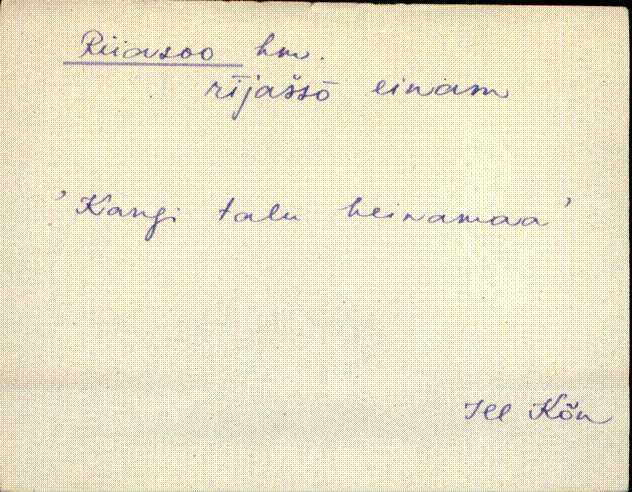 Riiasoo hm.
rījašsō einam
'Kangi talu heinamaa'
Kõn